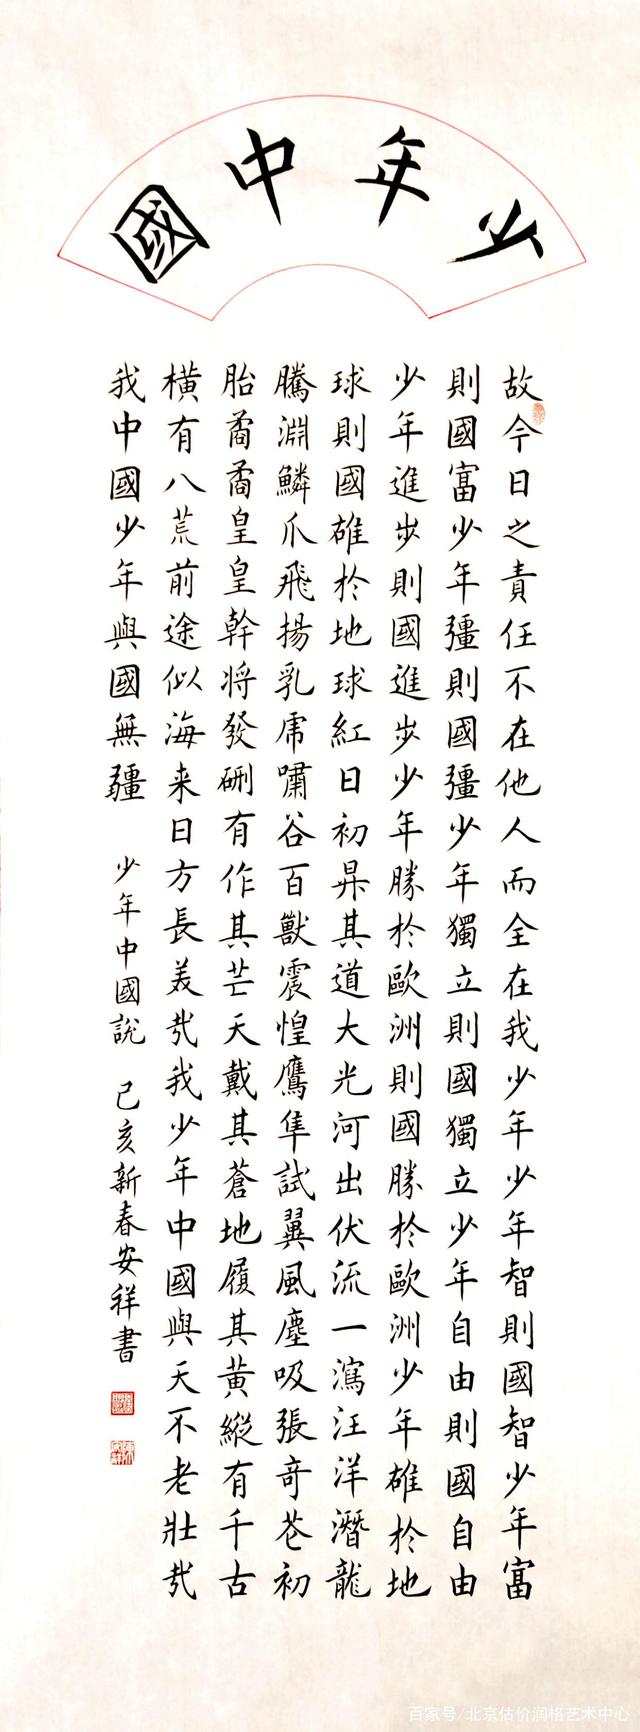 少年中國
故今日之責任不在他人而全在我少年少年智則國智少年富
則國富少年彊則國彊少年獨立則國獨立少年自由則國自由
少年進步則國進步少年勝於歐洲則國勝於歐洲少年雄於地
球則國雄於地球紅日初昇其道大光河出伏流一瀉汪洋潛龍
騰淵鱗爪飛揚乳虎嘯谷百獸震惶鷹隼試翼風塵吸張奇花初
胎矞矞皇皇幹將發硎有作其芒天戴其蒼地履其黃縱有千古
橫有八荒前途似海来日方長美哉我少年中國與天不老壯哉
我中國少年與國無疆 少年中國說 己亥新春安祥書
百家号/北京估价润格艺术中心